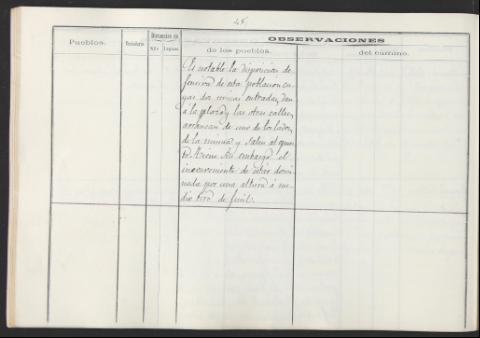 45.
OBSERVACIONES
Pueblos. Vecindario Distancias en
Kils Leguas
de los pueblos. del camino.
Es notable la disposicion de
fensiva de esta poblacion cu
yas dos unicas entradas, dan
á la plaza y las otras calles,
arrancan de uno de los lados
de la misma y salen al
Tiene sin embargo el
inconveniente de estar domi
nada por una altura á me
dio tiro de fusil.